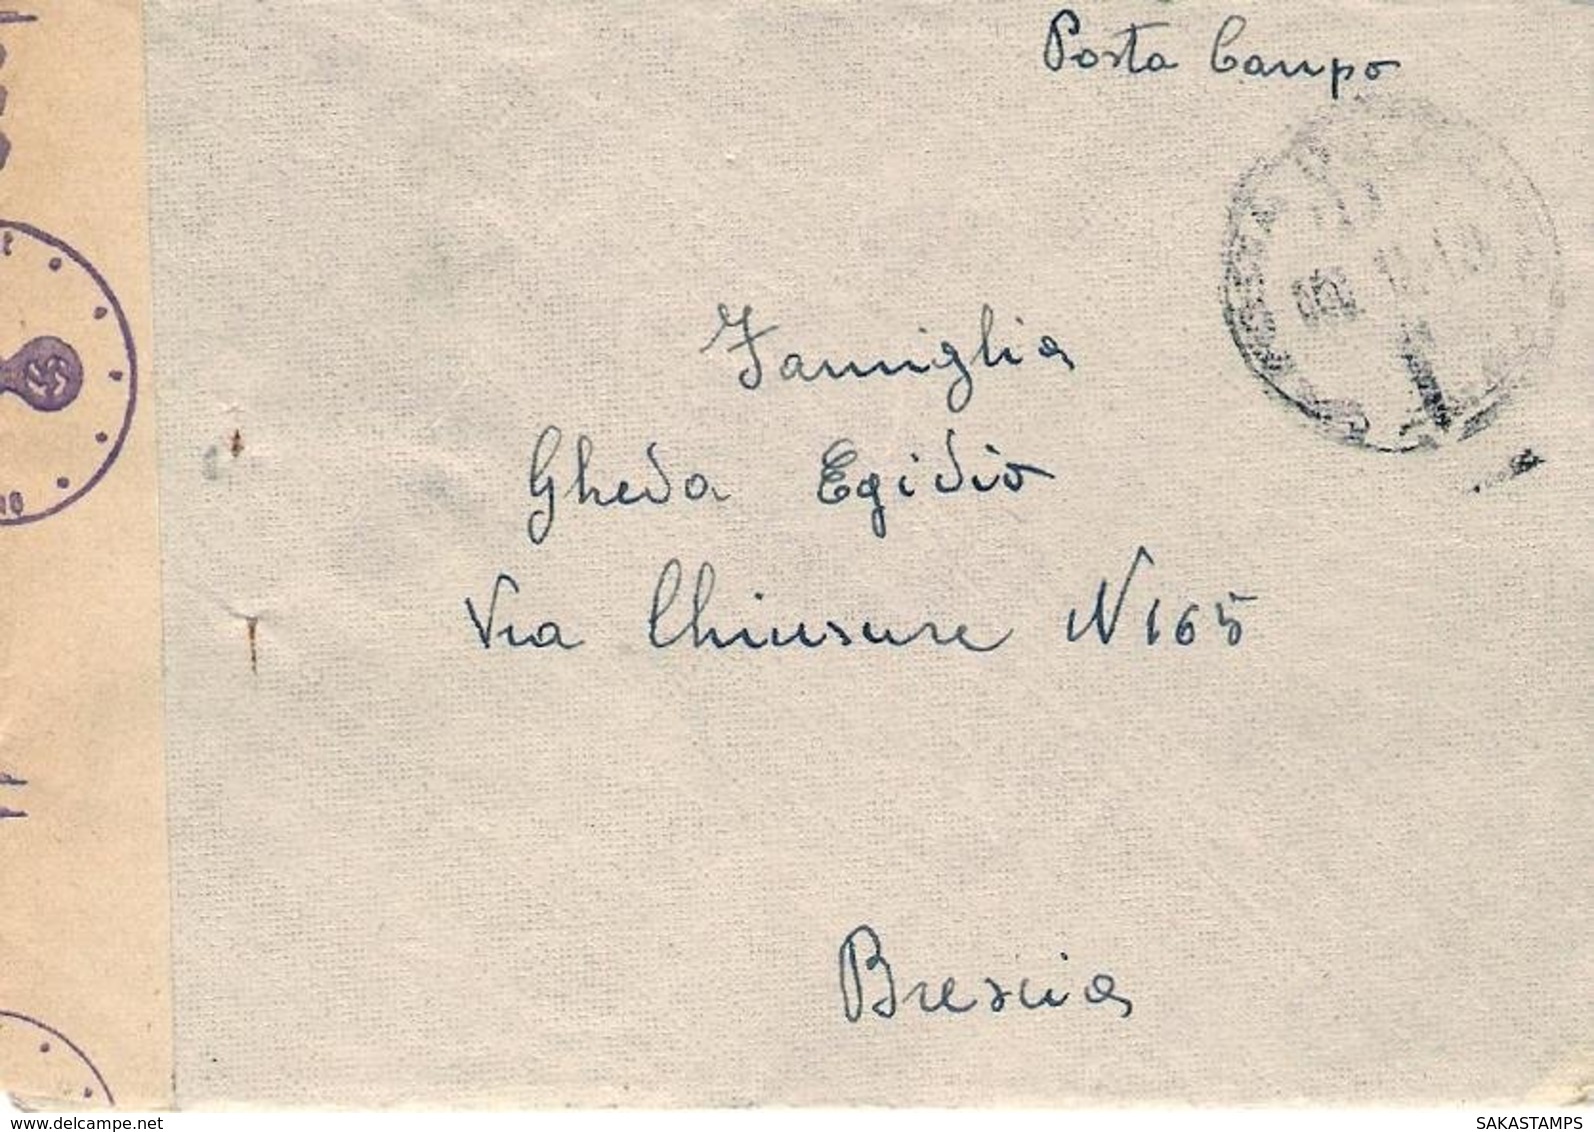 Posta Campo
Famiglia
Gheda Egidio
Via Chiusure N 165
Brescia
www.delcampe.net
SAKASTAMPS